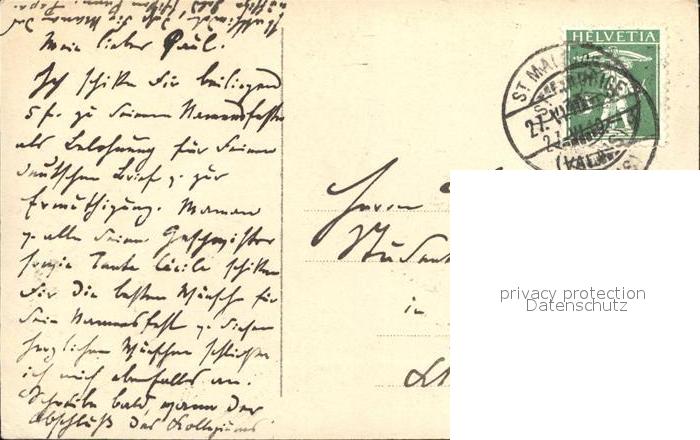 Mein lieber Paul.
Ich schike Dir beiliegend
5 f. zu Deinem Namensfeste
als Belohnung für Deinen
deutschen Brief u. zur
Ermuthigung. Maman
u. alle Deine Geschwister
sowie Tante Cécile schiken
Dir die besten Wünsche für
Dein Namensfest u. diesen
herzlichen Wünschen schließe
ich mich ebenfalls an.
Schreibe bald, wann der
Abschluß des Kollegiums
HELVETIA
ST MAURICE
27. XI
(VALAIS)
Herrn
Student
in
privacy protection
Datenschutz